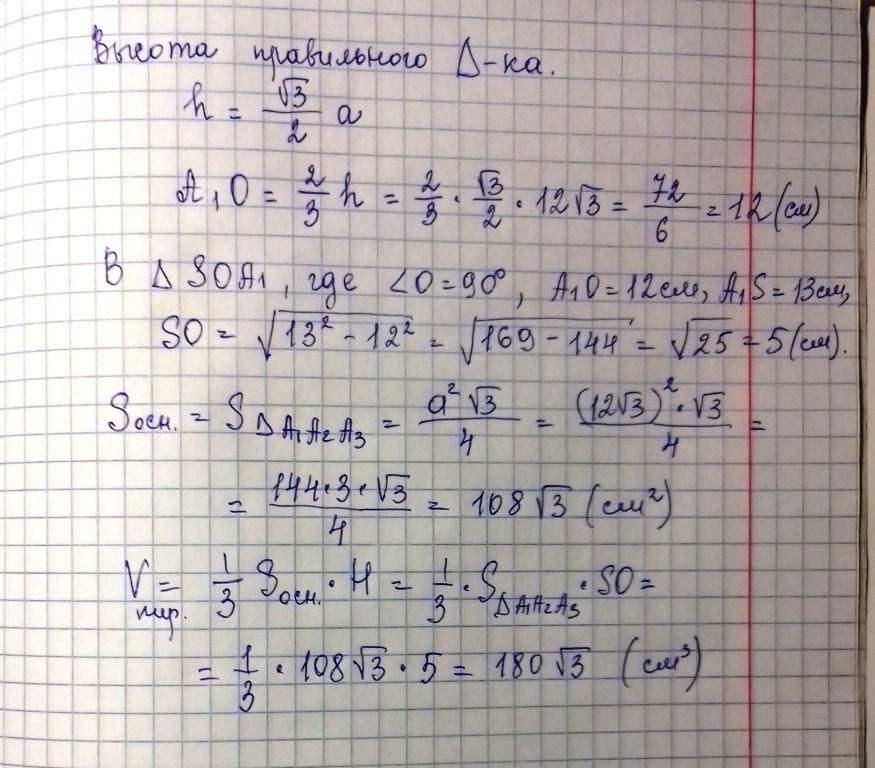 Высота правильного Δ-ка.
h = √3/2 a
A₁O = 2/3 h = 2/3 · √3/2 · 12√3 = 72/6 = 12 (см)
В Δ SOA₁, где ∠O = 90°, A₁O = 12 см, A₁S = 13 см,
SO = √(13² - 12²) = √(169 - 144) = √25 = 5 (см).
Sосн. = S Δ A₁A₂A₃ = a²√3/4 = (12√3)² · √3/4 =
= 144·3·√3/4 = 108√3 (см²)
Vпир. = 1/3 Sосн. · H = 1/3 · SΔA₁A₂A₃ · SO =
= 1/3 · 108√3 · 5 = 180√3 (см³)